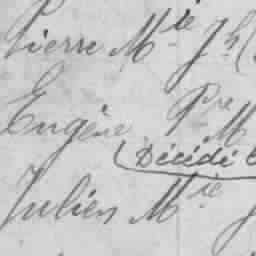 Pierre Mie Jh (
Eugène Pre M
(Décédé
Julien Mie J